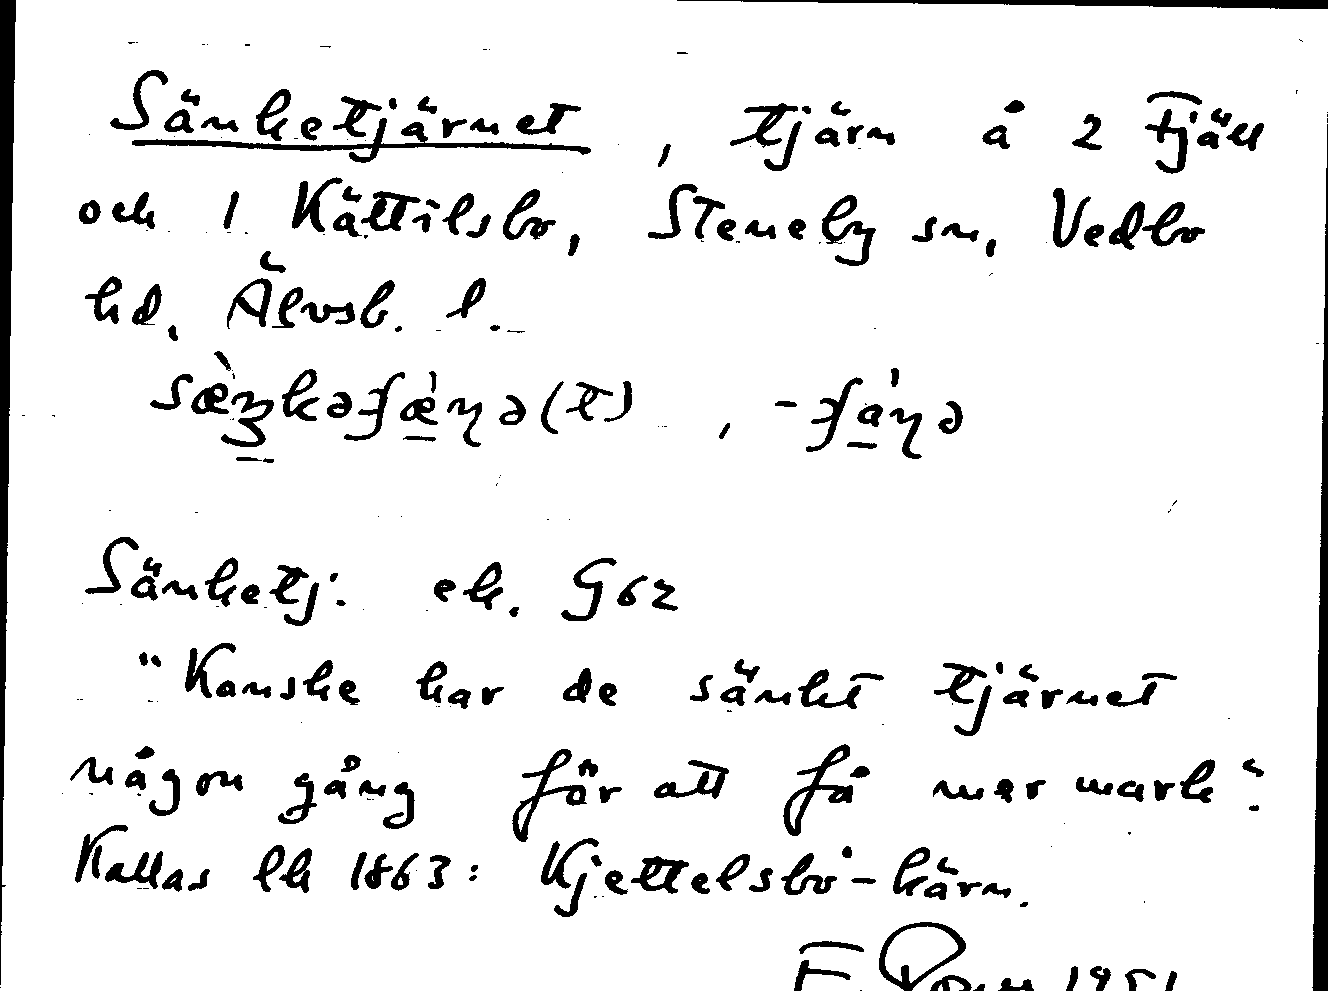 Sänketjärnet, tjärn å 2 Fjäll
och 1 Kättilsbo, Steneby sn, Vedbo
hd, Älvsb. l.
Sänketj: ek. G62
"Kanske har de sänkt tjärnet
någon gång för att få mer mark".
Kallas lk 1863: Kjettelsbo-kärn.
1951